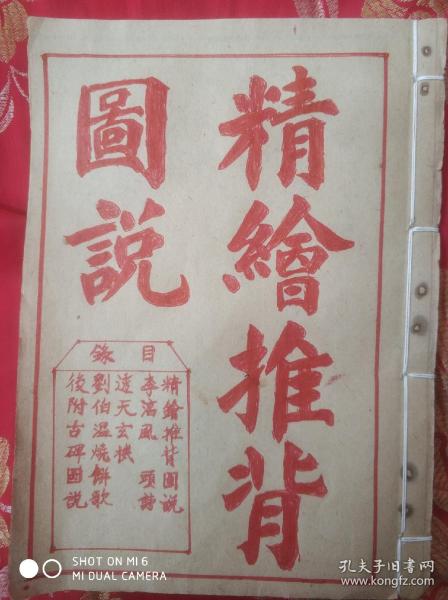 精繪推背
圖說
目錄
精繪推背圖説
李淳風 頌詩
透天玄機
劉伯温燒餅歌
後附古碑圖説
SHOT ON MI 6
MI DUAL CAMERA
孔夫子旧书网
www.kongfz.com